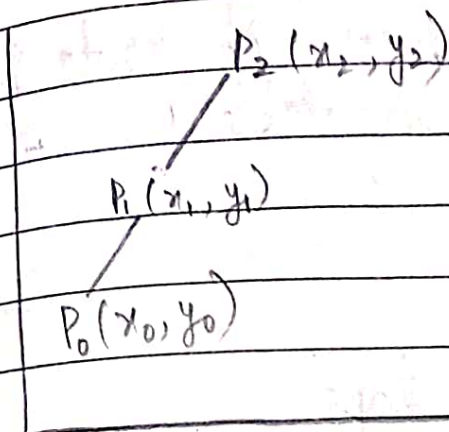 P₂ (x₂, y₂)
P₁ (x₁, y₁)
P₀ (x₀, y₀)